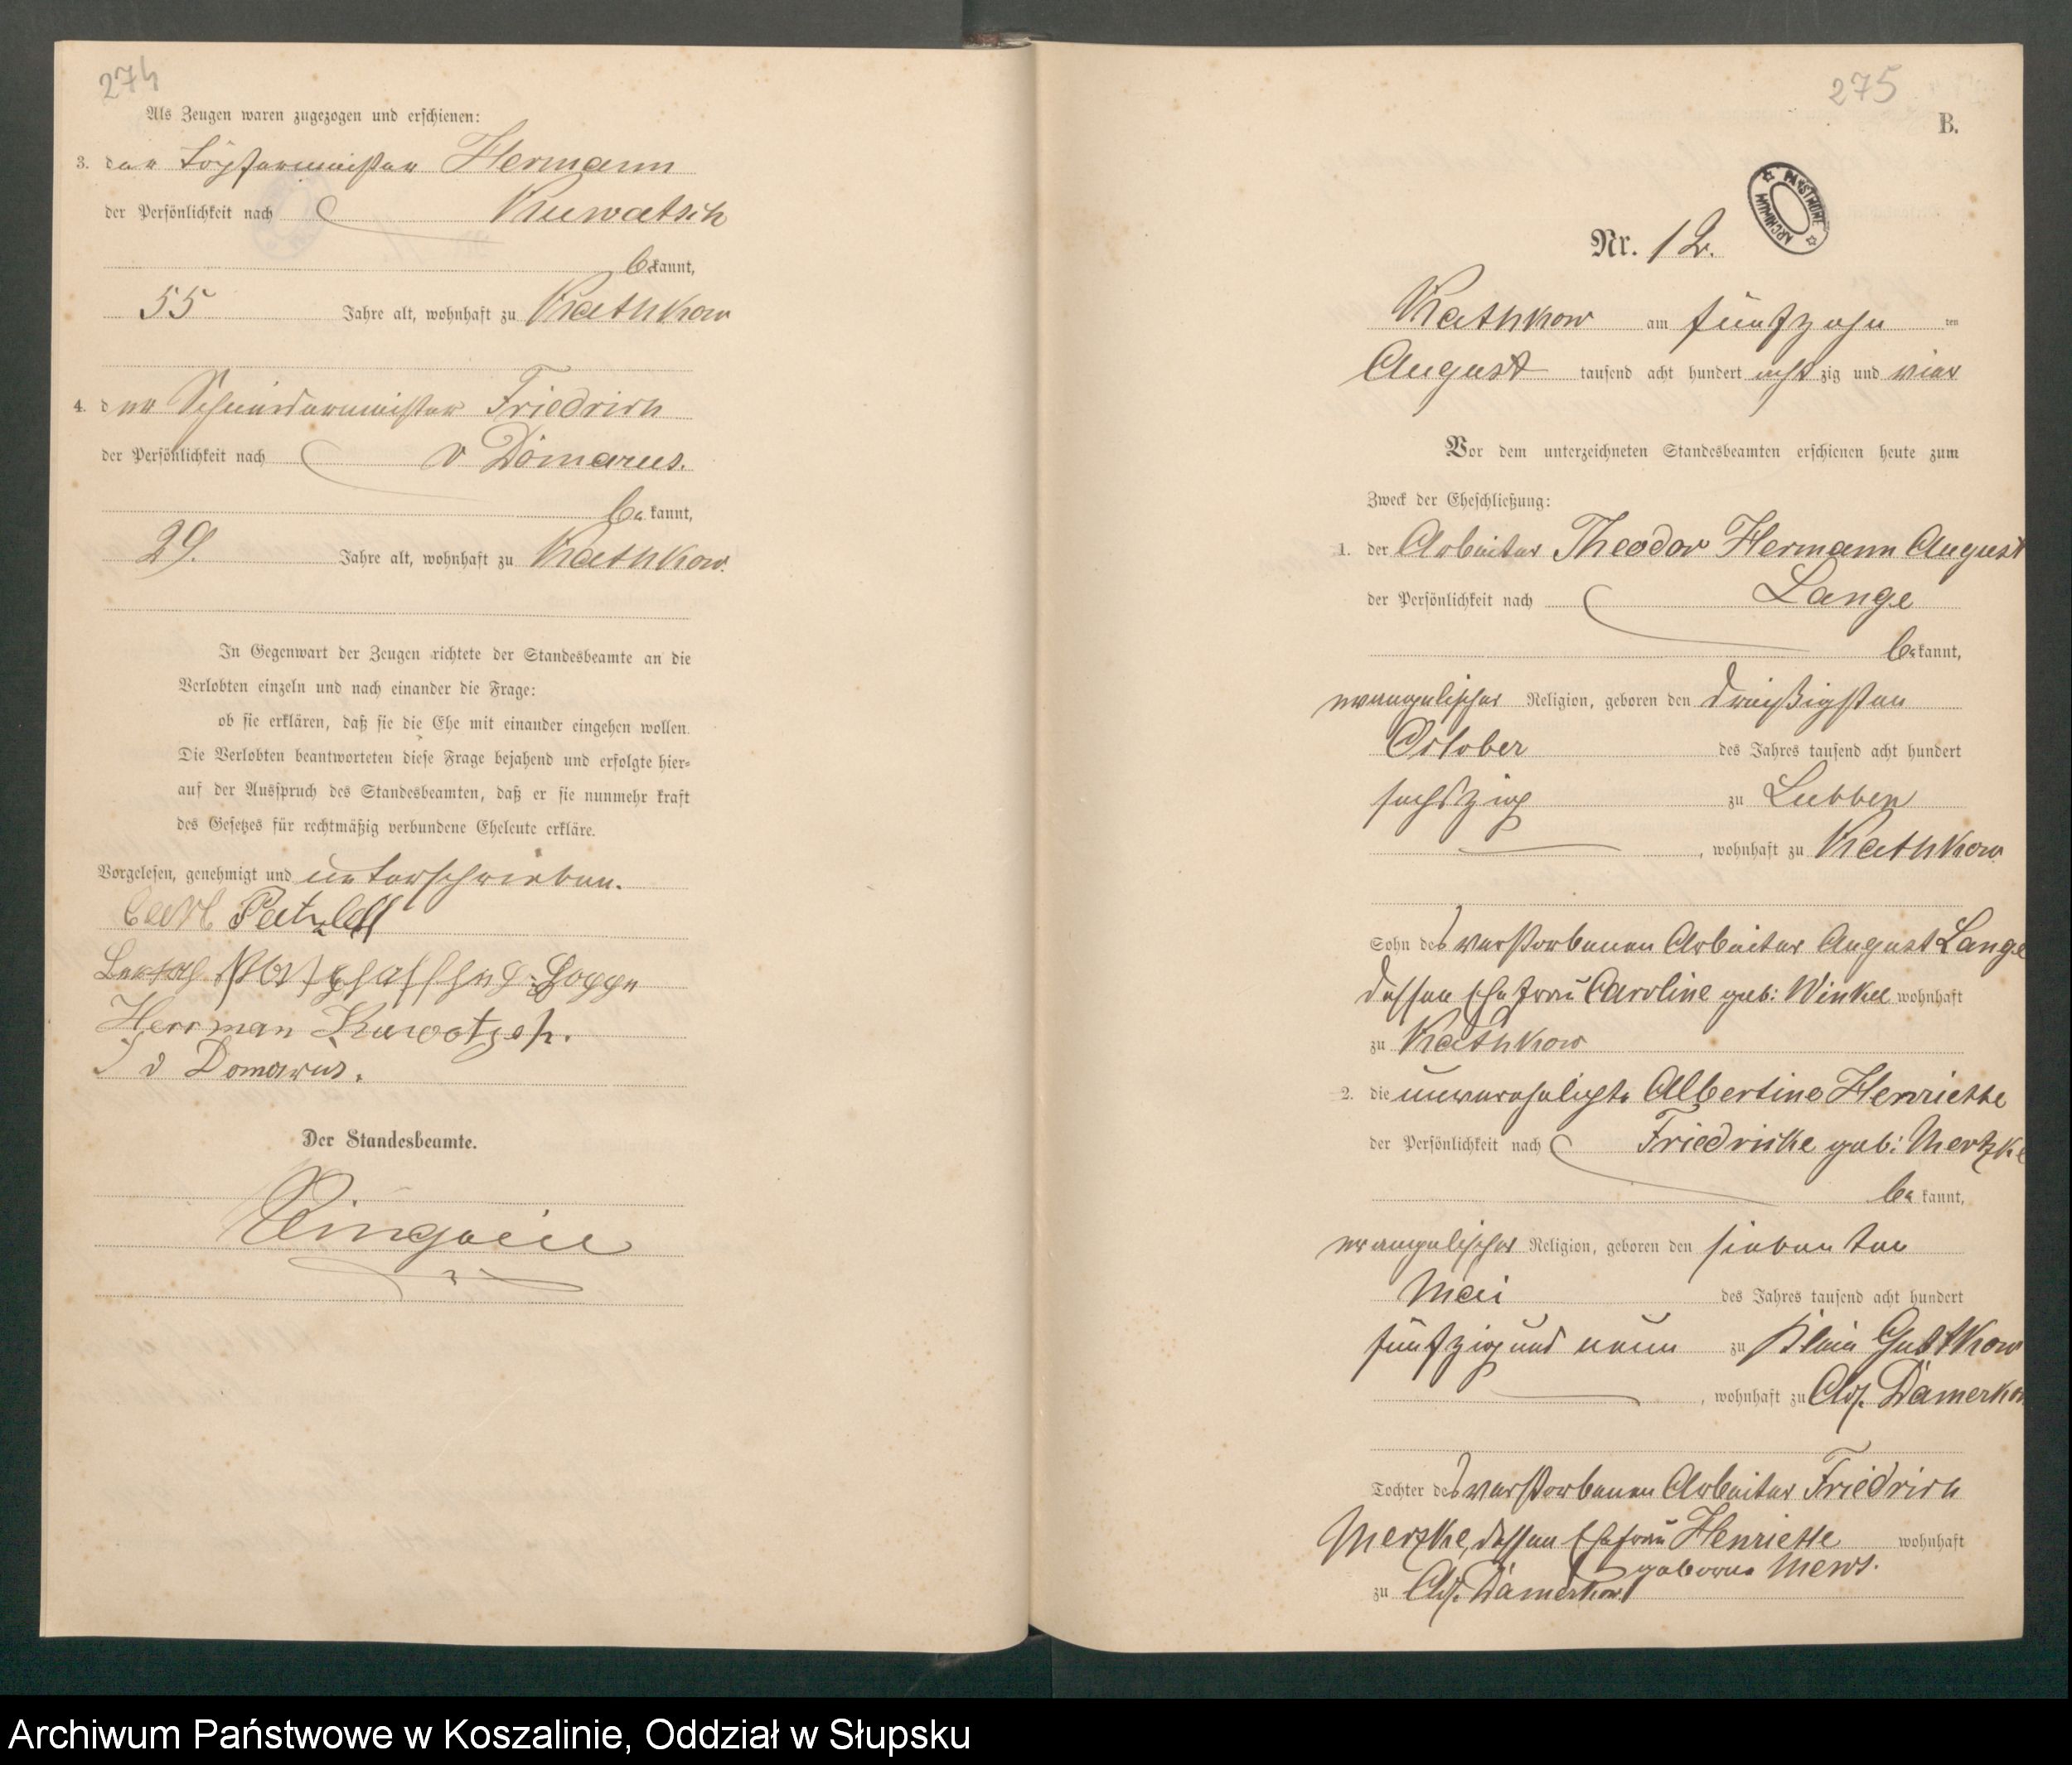 274
Als Zeugen waren zugezogen und erschienen:
3. der Töpfermeister Hermann
der Persönlichkeit nach Kuwatsch
bekannt,
55 Jahre alt, wohnhaft zu Kathkow
4. der Schneidermeister Friedrich
der Persönlichkeit nach v Domarus.
bekannt,
29. Jahre alt, wohnhaft zu Kathkow.
In Gegenwart der Zeugen richtete der Standesbeamte an die
Verlobten einzeln und nach einander die Frage:
ob sie erklären, daß sie die Ehe mit einander eingehen wollen.
Die Verlobten beantworteten diese Frage bejahend und erfolgte hier-
auf der Ausspruch des Standesbeamten, daß er sie nunmehr kraft
des Gesetzes für rechtmäßig verbundene Eheleute erkläre.
Vorgelesen, genehmigt und unterschrieben.
Carl Patzlaff
Herrman Kuwatzch.
F v Domarus.
Der Standesbeamte.
275
B.
ARCHIWUM PAŃSTWOWE
Nr. 12.
Kathkow am fünfzehn ten
August tausend acht hundert achtzig und vier
Vor dem unterzeichneten Standesbeamten erschienen heute zum
Zweck der Eheschließung:
1. der Arbeiter Theodor Hermann August
der Persönlichkeit nach Lange
bekannt,
evangelischer Religion, geboren den dreißigsten
October des Jahres tausend acht hundert
sechszig zu Lubben
, wohnhaft zu Kathkow
Sohn des verstorbenen Arbeiter August Lange
dessen Ehefrau Caroline geb: Winkel wohnhaft
zu Kathkow
2. die unverehelichte Albertine Henriette
der Persönlichkeit nach Friedricke geb: Mertzke
bekannt,
evangelischer Religion, geboren den siebenten
Mai des Jahres tausend acht hundert
fünfzig und neun zu Klein Gustkow
, wohnhaft zu Adl. Damerkow
Tochter des verstorbenen Arbeiter Friedrich
Merzke, dessen Ehefrau Henriette wohnhaft
geborne Mews.
zu Adl. Damerkow
Archiwum Państwowe w Koszalinie, Oddział w Słupsku